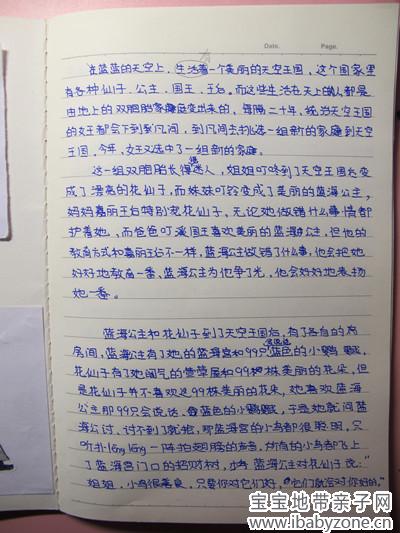 Date.        Page.
在蓝蓝的天空上，生活着一个美丽的天空王国，这个国家里
有各种仙子、公主、国王、王后。而这些生活在天上的人都是
由地上的双胞胎家庭变出来的，每隔二十年，统治天空王国
的女王都会下到凡间，到凡间去挑选一组新的家庭到天空
王国，今年，女王又选中了一组新的家庭。
这一组双胞胎长得很迷人，姐姐叮咚到了天空王国后变
成了漂亮的花仙子，而妹妹叮铃变成了美丽的蓝海公主，
妈妈嘉丽王后特别宠花仙子，无论她做错什么事情都
护着她、而爸爸叮溪国王喜欢美丽的蓝海公主，但他的
教育方式和嘉丽王后不一样，蓝海公主做错了什么事，他会把她
好好地教育一番、蓝海公主为他争了光，他会好好地表扬
她一番。
蓝海公主和花仙子到了天空王国后，有了各自的房
房间，蓝海公主有了她的蓝海宫和99只会说话蓝色的小鹦鹉，
花仙子有了她阔气的堂屋和99株美丽的花朵，但
是花仙子并不喜欢这99株美丽的花朵，她喜欢蓝海
公主那99只会说话、蓝色的小鹦鹉，于是她就问蓝
海公讨，讨不到了就抢，那蓝海宫的小鸟都很聪明，只
听扑leng leng一阵拍翅膀的声音，所有的小鸟都飞上
了蓝海宫门口的把财树，蓝海公主对花仙子说："
姐姐，小鸟很善良，只要你对它们好，它们就会对你好的。"
宝宝地带亲子网
www.ibabyzone.cn